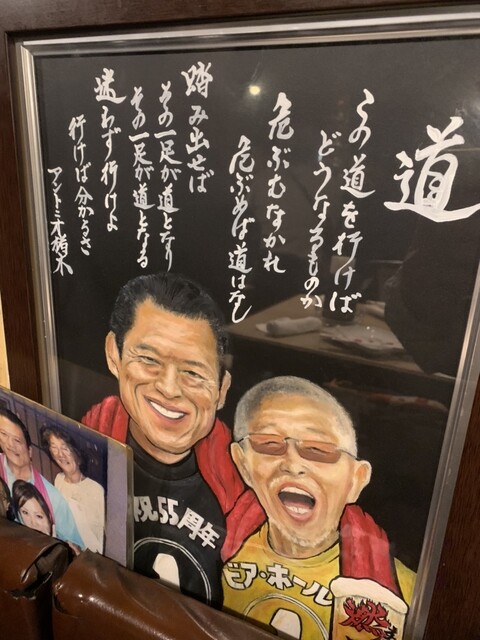 道
この道を行けば
どうなるものか
危ぶむなかれ
危ぶめば道はなし
踏み出せば
その一足が道となり
その一足が道となる
迷わず行けよ
行けば分かるさ
アントニオ猪木
祝55周年
ビア・ホール